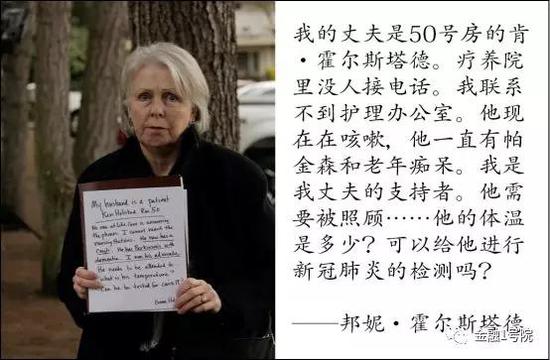 My husband is a patient
Ken Holstad Rm 50
No one at Life Care is answering
the phone. I cannot reach the
nursing stations. He now has a
cough. He has Parkinsons with
dementia. I am his advocate.
He needs to be attended to
what is his temperature?
Can he be tested for
我的丈夫是50号房的肯
·霍尔斯塔德。疗养院
里没人接电话。我联系
不到护理办公室。他现
在在咳嗽，他一直有帕
金森和老年痴呆。我是
我丈夫的支持者。他需
要被照顾……他的体温
是多少？可以给他进行
新冠肺炎的检测吗？
——邦妮·霍尔斯塔德
金融1号院